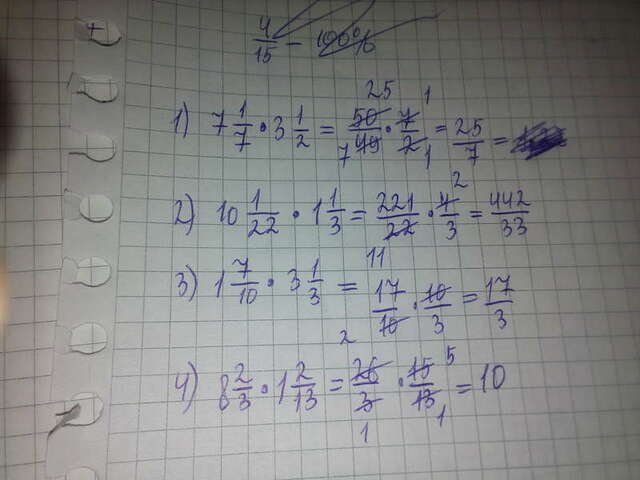 4/15 - 100%
1) 7 1/7 · 3 1/2 = 50/49 · 7/2 = 25/7 =
25 1
7 1
2) 10 1/22 · 1 1/3 = 221/22 · 4/3 = 442/33
2
11
3) 1 7/10 · 3 1/3 = 17/10 · 10/3 = 17/3
4) 8 2/3 · 1 2/13 = 26/3 · 15/13 = 10
2 5
1 1